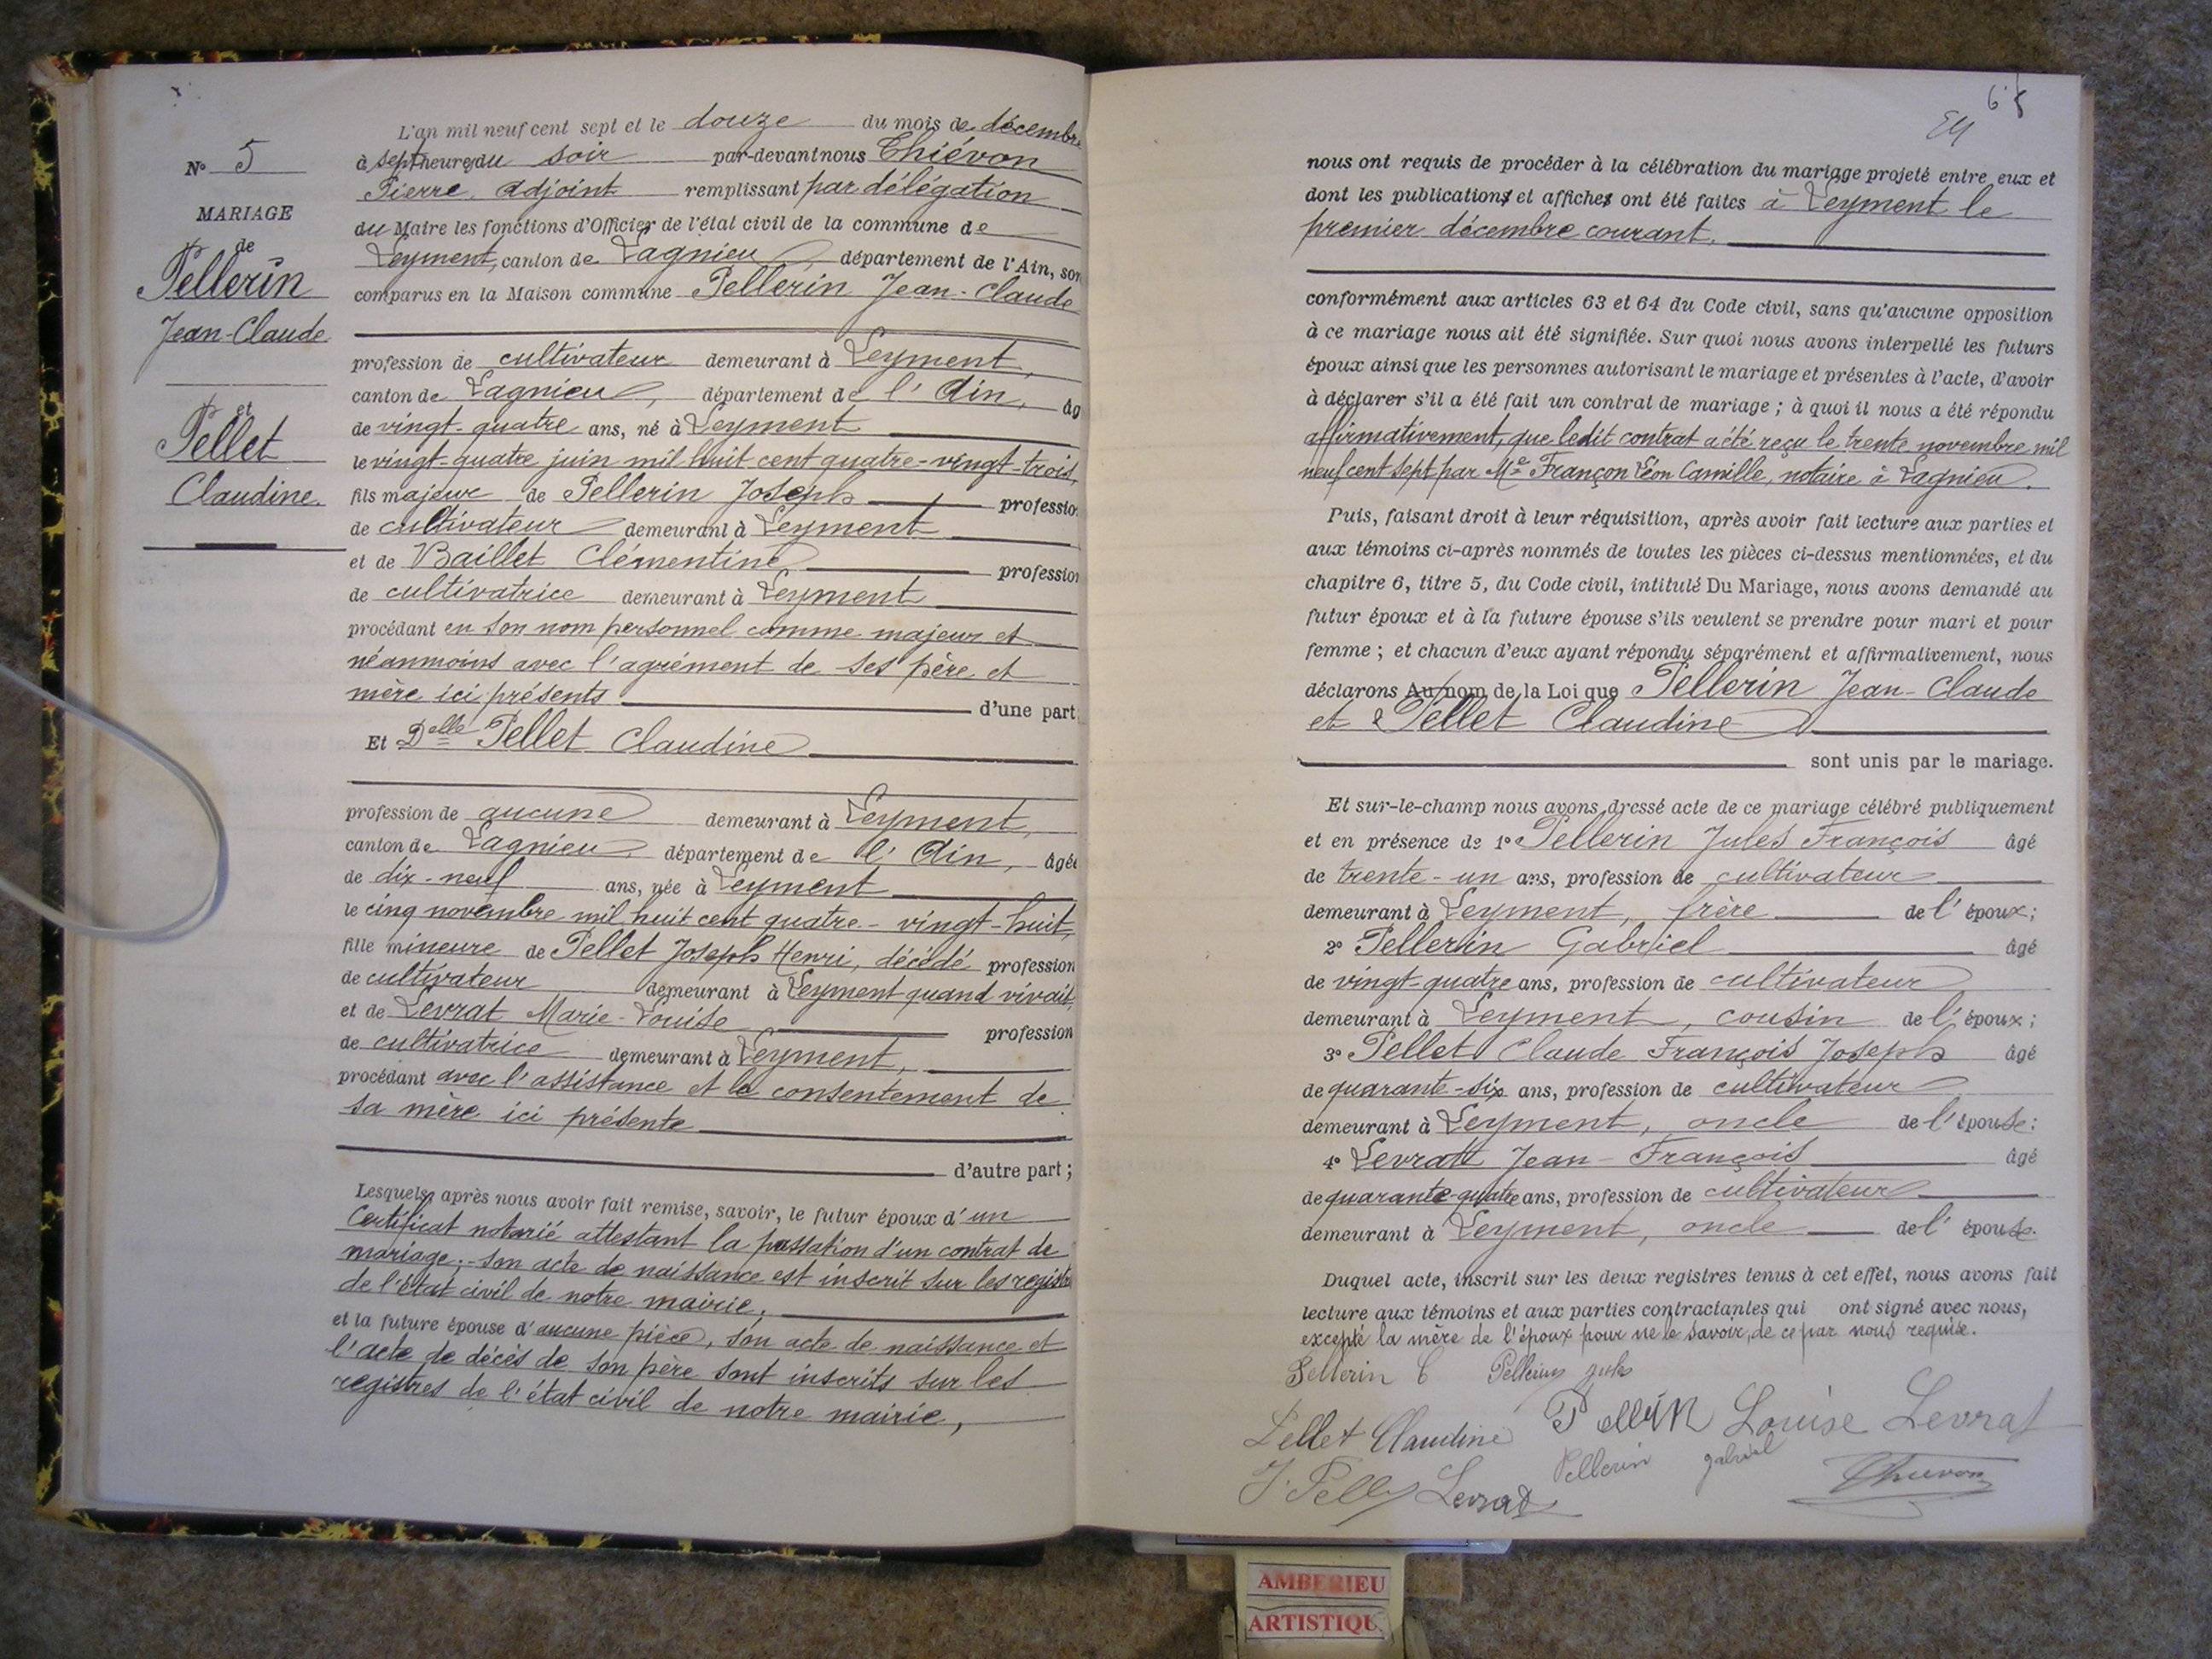 N° 5
MARIAGE
de
Pellerin
Jean-Claude
et
Pellet
Claudine.
L'an mil neuf cent sept et le douze du mois de décembre
à sept heures du soir par-devant nous Thiévon
Pierre, Adjoint remplissant par délégation
du Maire les fonctions d'Officier de l'état civil de la commune de
Leyment, canton de Lagnieu, département de l'Ain, son
comparus en la Maison commune Pellerin Jean-Claude
profession de cultivateur demeurant à Leyment,
canton de Lagnieu, département de l'Ain, âg
de vingt-quatre ans, né à Leyment
le vingt-quatre juin mil huit cent quatre-vingt-trois,
fils majeur de Pellerin Joseph professio
de cultivateur demeurant à Leyment
et de Baillet Clémentine profession
de cultivatrice demeurant à Leyment
procédant en son nom personnel comme majeur et
néanmoins avec l'agrément de ses père et
mère ici présents d'une part;
Et Delle Pellet Claudine
profession de aucune demeurant à Leyment,
canton de Lagnieu, département de l'Ain, âgée
de dix-neuf ans, née à Leyment
le cinq novembre mil huit cent quatre-vingt-huit,
fille mineure de Pellet Joseph Henri, décédé profession
de cultivateur demeurant à Leyment quand vivait,
et de Levrat Marie-Louise profession
de cultivatrice demeurant à Leyment,
procédant avec l'assistance et le consentement de
sa mère ici présente
d'autre part;
Lesquels, après nous avoir fait remise, savoir, le futur époux d'un
Certificat notarié attestant la passation d'un contrat de
mariage; - son acte de naissance est inscrit sur les registres
de l'état civil de notre mairie,
et la future épouse d'aucune pièce, son acte de naissance et
l'acte de décès de son père sont inscrits sur les
registres de l'état civil de notre mairie,
nous ont requis de procéder à la célébration du mariage projeté entre eux et
dont les publications et affiches ont été faites à Leyment le
premier décembre courant.
conformément aux articles 63 et 64 du Code civil, sans qu'aucune opposition
à ce mariage nous ait été signifiée. Sur quoi nous avons interpellé les futurs
époux ainsi que les personnes autorisant le mariage et présentes à l'acte, d'avoir
à déclarer s'il a été fait un contrat de mariage; à quoi il nous a été répondu
affirmativement, que ledit contrat a été reçu le trente novembre mil
neuf cent sept par Me Françon Léon Camille, notaire à Lagnieu.
Puis, faisant droit à leur réquisition, après avoir fait lecture aux parties et
aux témoins ci-après nommés de toutes les pièces ci-dessus mentionnées, et du
chapitre 6, titre 5, du Code civil, intitulé Du Mariage, nous avons demandé au
futur époux et à la future épouse s'ils veulent se prendre pour mari et pour
femme; et chacun d'eux ayant répondu séparément et affirmativement, nous
déclarons Au nom de la Loi que Pellerin Jean-Claude
et Pellet Claudine
sont unis par le mariage.
Et sur-le-champ nous avons dressé acte de ce mariage célébré publiquement
et en présence de 1° Pellerin Jules François âgé
de trente-un ans, profession de cultivateur
demeurant à Leyment, frère de l'époux;
2° Pellerin Gabriel âgé
de vingt-quatre ans, profession de cultivateur
demeurant à Leyment, cousin de l'époux;
3° Pellet Claude François Joseph âgé
de quarante-six ans, profession de cultivateur
demeurant à Leyment, oncle de l'épouse;
4° Levrat Jean-François âgé
de quarante-quatre ans, profession de cultivateur
demeurant à Leyment, oncle de l'épouse.
Duquel acte, inscrit sur les deux registres tenus à cet effet, nous avons fait
lecture aux témoins et aux parties contractantes qui ont signé avec nous,
excepté la mère de l'époux pour ne le savoir, de ce par nous requise.
Pellerin C Pellerin jules
Pellet Claudine Pellerin Louise Levrat
Pellerin gabriel
J. Pellet Levrat Thiévon
AMBERIEU
ARTISTIQU